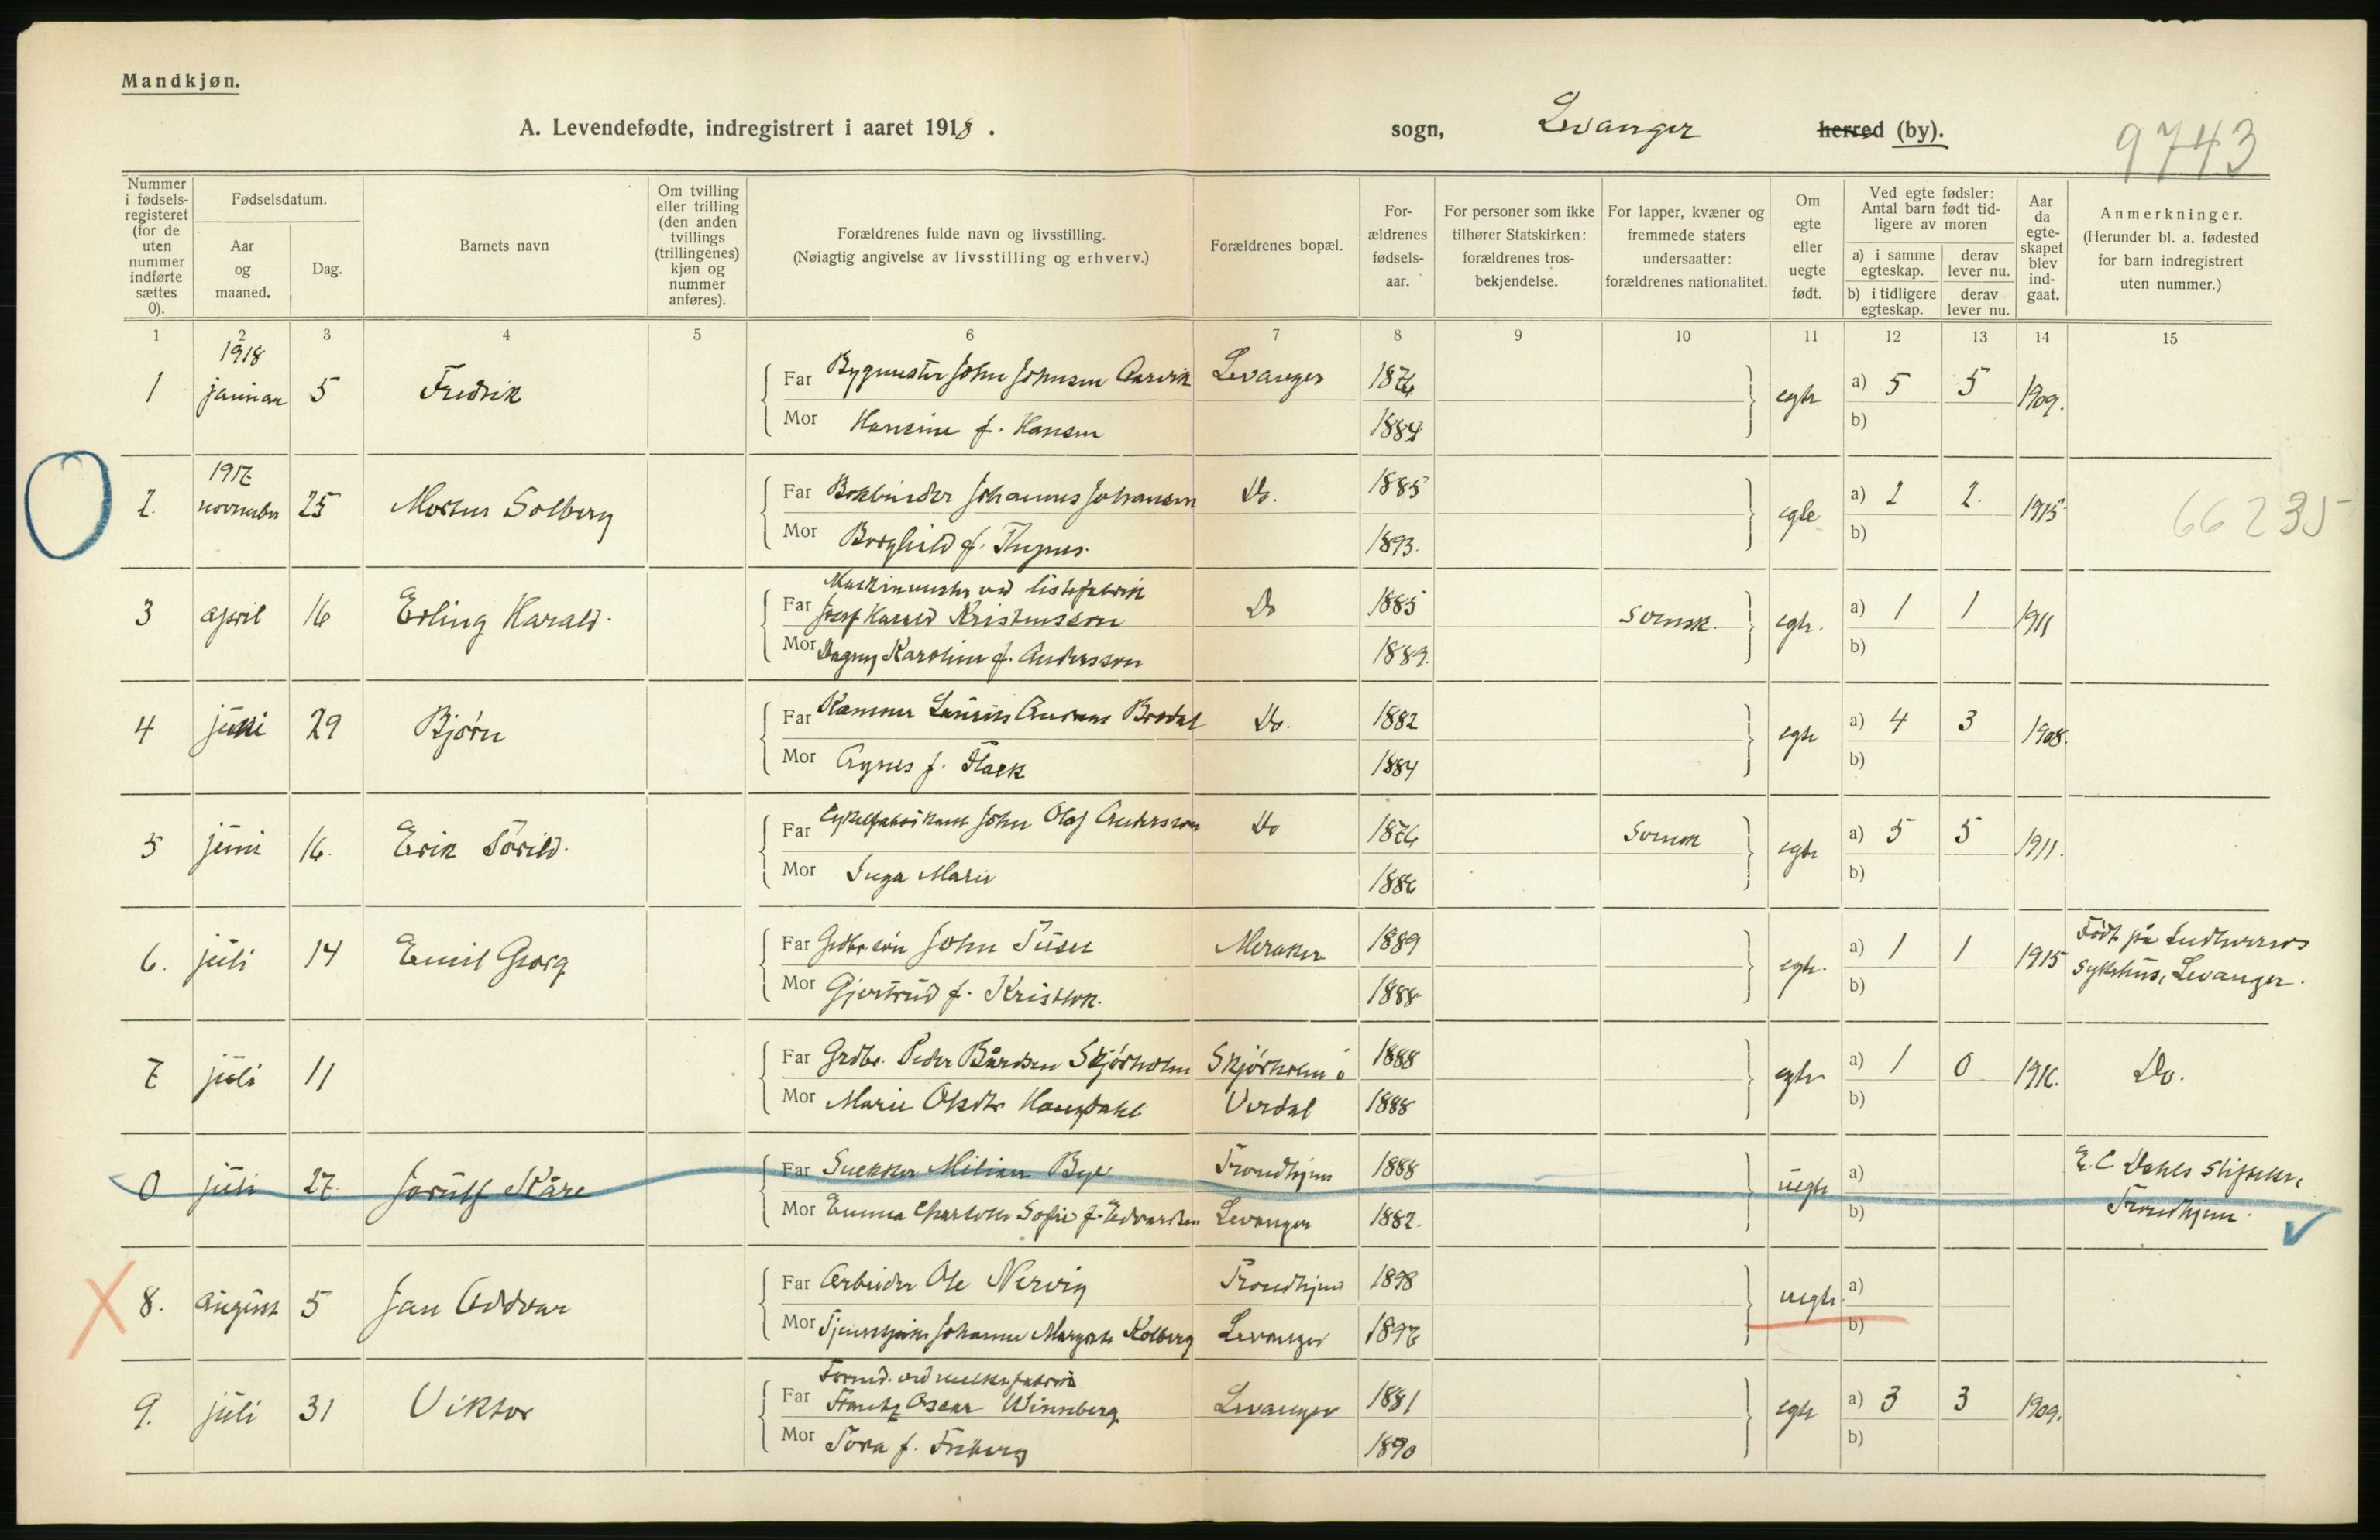 Mandkjøn.
A. Levendefødte, indregistrert i aaret 1918 .
sogn, Levanger herred (by).
9743
Nummer i fødsels-registeret (for de uten nummer indførte sættes 0).
Fødselsdatum.
Aar og maaned.
Dag.
Barnets navn
Om tvilling eller trilling (den anden tvillings (trillingenes) kjøn og nummer anføres).
Forældrenes fulde navn og livsstilling.
(Nøiagtig angivelse av livsstilling og erhverv.)
Forældrenes bopæl.
For-ældrenes fødsels-aar.
For personer som ikke tilhører Statskirken: forældrenes tros-bekjendelse.
For lapper, kvæner og fremmede staters undersaatter: forældrenes nationalitet.
Om egte eller uegte født.
Ved egte fødsler: Antal barn født tid-ligere av moren
a) i samme egteskap.
derav lever nu.
b) i tidligere egteskap.
derav lever nu.
Aar da egte-skapet blev ind-gaat.
Anmerkninger.
(Herunder bl. a. fødested for barn indregistrert uten nummer.)
1 2 3 4 5 6 7 8 9 10 11 12 13 14 15
1918
1 januar 5 Fredrik Far Bygmester John Johnsen Levanger 1876 egte a) 5 5 1909.
Mor Hansine f. Hansen 1884 b)
1917
2. november 25 Morten Solberg Far Bokbinder Johannes Johansen Do. 1885 egte a) 2 2. 1915
Mor Borghild f. 1893. b)
66235
Maskinmester ved listefabrik
3 april 16 Erling Harald. Far Josef Harald Kristensson Do 1885 svensk. egte. a) 1 1 1911
Mor Dagny Karoline f. Andersson 1889. b)
4 juni 29 Bjørn Far Lauritz Andreas Do. 1882 egte a) 4 3 1908.
Mor Agnes f. Flack 1884 b)
5 juni 16. Erik Torild. Far Cykelfabrikant John Olof Andersson Do 1876 svensk egte a) 5 5 1911.
Mor Inga Marie 1886 b)
6. juli 14 Emil Georg Far Grdbr.søn John Meraker 1889 egte. a) 1 1 1915 Født på Indherreds
Mor Gjertrud f. 1888 b) sykehus, Levanger.
7 juli 11 Far Grdbr. Peder Bårdsen Skjørholm Skjørholm i 1888 egte a) 1 0 1916. Do.
Mor Marie Olsdtr Haugdahl Verdal 1888 b)
0 juli 27. Jorulf Kåre Far Snekker Bye Trondhjem 1888 uegte a) E. C Dahls stiftelse,
Mor Emma Charlotte Sofie f. Edvardsen Levanger 1882. b) Trondhjem.
8. august 5 Jan Oddvar Far Arbeider Ole Nervig Trondhjem 1898 uegte. a)
Mor Tjenestepike Johanne Margrete Kolberg Levanger 1897 b)
Formd. ved melkefabrik
9. juli 31 Viktor Far Frantz Oscar Winnberg Levanger 1881 egte a) 3 3 1909.
Mor Tora f. Friberg 1890 b)